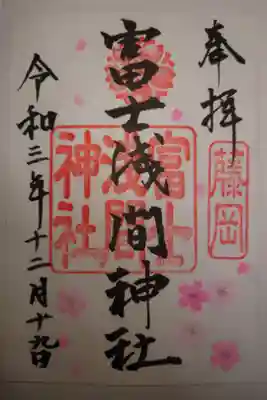 奉拝
藤岡
富士浅間神社
富士浅間神社
令和三年十二月十九日